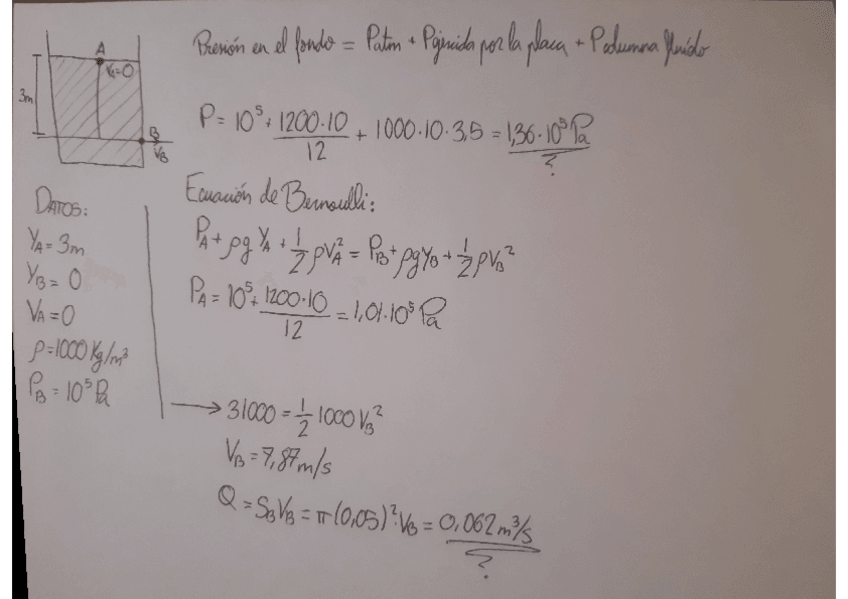 A
V_A=0
3m
B
V_B
Presión en el fondo = Patm + Pejercida por la placa + Pcolumna fluido
P = 10^5 + 1200·10/12 + 1000·10·3,5 = 1,36·10^5 Pa
?
DATOS:
Y_A = 3m
Y_B = 0
V_A = 0
ρ = 1000 Kg/m^3
P_B = 10^5 Pa
Ecuación de Bernoulli:
P_A + ρg Y_A + 1/2 ρV_A^2 = P_B + ρg Y_B + 1/2 ρV_B^2
P_A = 10^5 + 1200·10/12 = 1,01·10^5 Pa
→ 31000 = 1/2 1000 V_B^2
V_B = 7,87 m/s
Q = S_B V_B = π(0,05)^2·V_B = 0,062 m^3/s
?